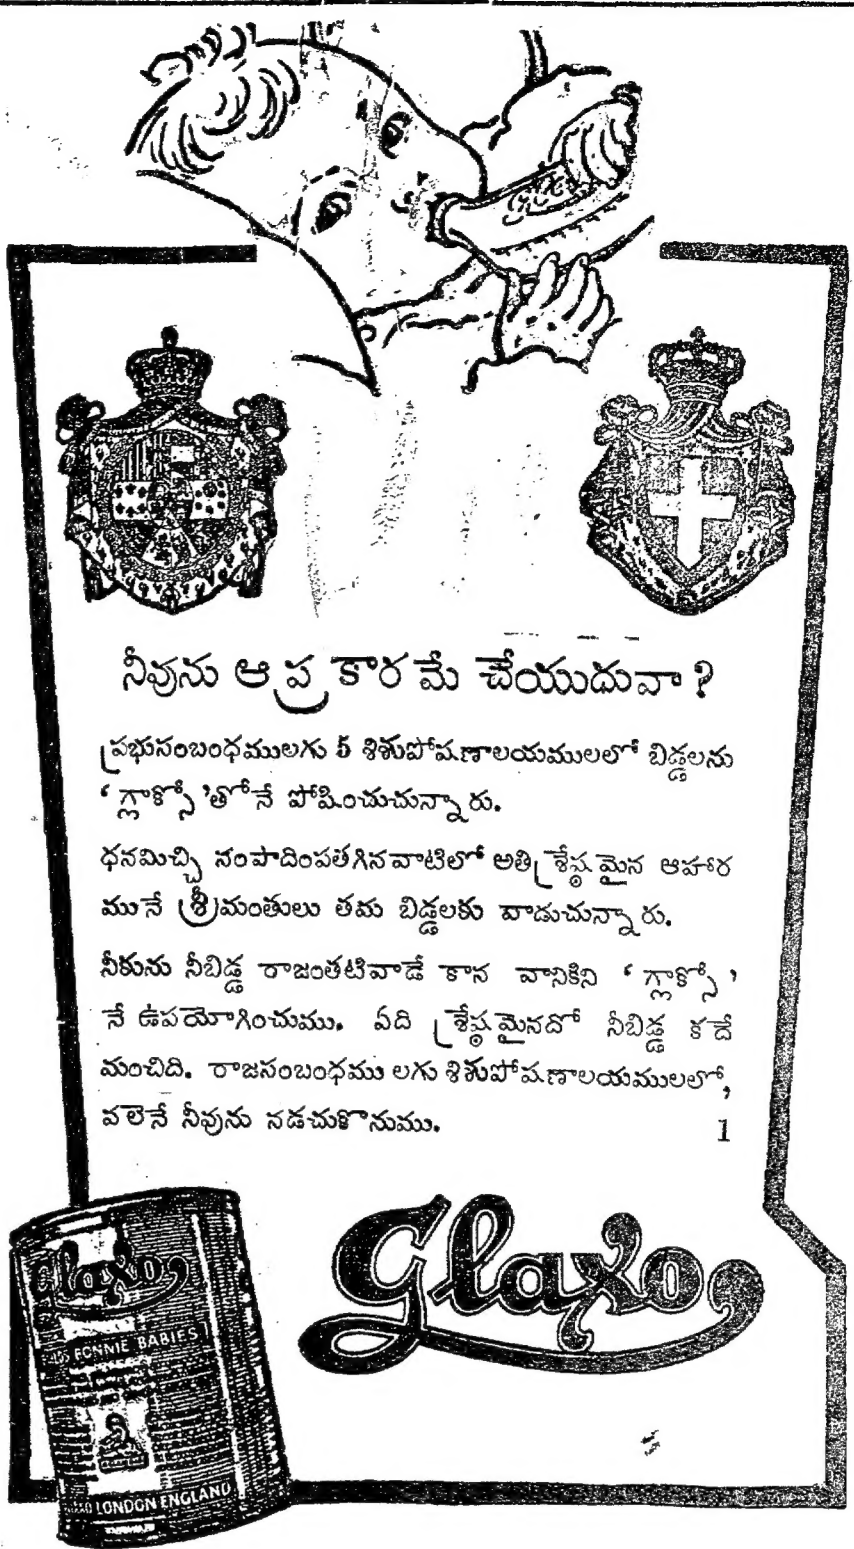 నీవును ఆ ప్రకారమే చేయుదువా?
ప్రభుసంబంధములగు 5 శిశుపోషణాలయములలో బిడ్డలను
‘గ్లాక్సో’తోనే పోషించుచున్నారు.
ధనమిచ్చి సంపాదింపతగినవాటిలో అతి శ్రేష్ఠమైన ఆహార
మునే శ్రీమంతులు తమ బిడ్డలకు వాడుచున్నారు.
నీకును నీబిడ్డ రాజంతటివాడే కాన వానికిని ‘గ్లాక్సో’
నే ఉపయోగించుము. ఏది శ్రేష్ఠమైనదో నీబిడ్డ కదే
మంచిది. రాజసంబంధము లగు శిశుపోషణాలయములలో,
వలెనే నీవును నడచుకొనుము. 1
Glaxo
Glaxo
BABIES
LONDON ENGLAND